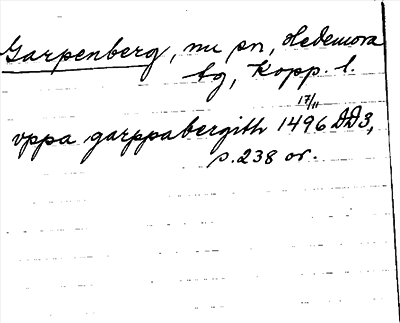 Garpenberg, nu sn, Hedemora
tg, Kopp. l.
17/11
vppa garppabergith 1496 DD3,
s. 238 or.